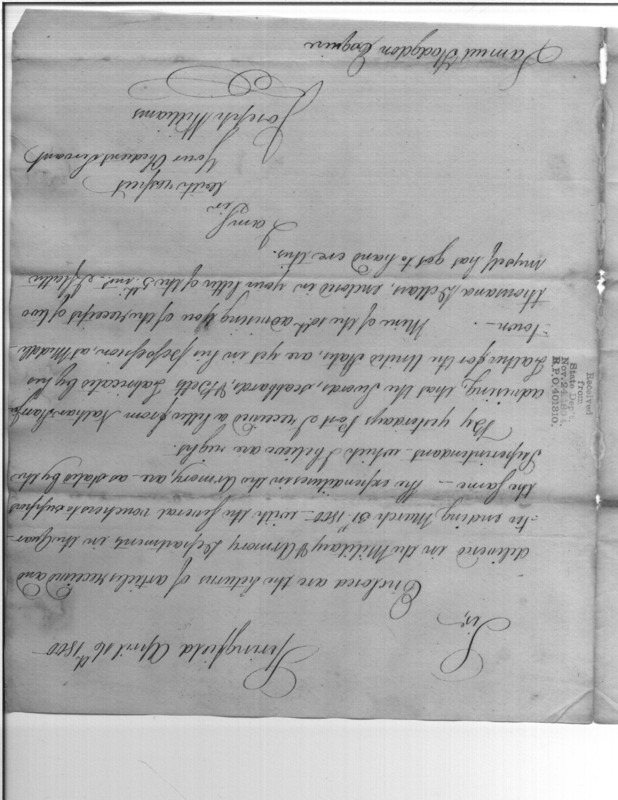 Springfield April 16th 1800
Sir,
Enclosed are the Returns of articles received and
delivered in the Military & Armory Departments in the Quar-
ter ending March 31st 1800 - with the general vouchers to support
the same - the expenditures in the Armory, are as stated by the
Superintendant which I believe are right.
By yesterdays Post I received a letter from Nathan Starr Jr
advising, that the Swords, Scabbards, & Belts fabricated by his
Father for the United States, are yet in his possession, at Middle
town -
Mine of the 10th advising you of the receipt of two
thousand, Dollars, enclosed in your letter of the 5th inst. I flatter
myself has got to hand ere this.
I am
Sir
with respect
Your Obedient Servant
Joseph Williams
Samuel Hodgdon Esquire
Received
from
State Dep't.
Nov. 2
R.P.O. 401810.